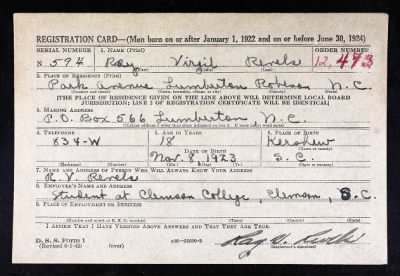 REGISTRATION CARD—(Men born on or after January 1, 1922 and on or before June 30, 1924)
SERIAL NUMBER 1. NAME (Print) ORDER NUMBER
N 594 Ray Virgil Revels 12,473
(First) (Middle) (Last)
2. PLACE OF RESIDENCE (Print)
Park avenue Lumberton Robeson N. C.
(Number and street) (Town, township, village or city) (County) (State)
[THE PLACE OF RESIDENCE GIVEN ON THE LINE ABOVE WILL DETERMINE LOCAL BOARD
JURISDICTION; LINE 2 OF REGISTRATION CERTIFICATE WILL BE IDENTICAL]
3. MAILING ADDRESS
P.O. Box 566 Lumberton N. C.
[Mailing address if other than place indicated on line 2. If same insert word same]
4. TELEPHONE 5. AGE IN YEARS 6. PLACE OF BIRTH
834-W 18 Kershaw
DATE OF BIRTH
Nov. 8 1923 S. C.
(Mo.) (Day) (Yr.) (State or country)
7. NAME AND ADDRESS OF PERSON WHO WILL ALWAYS KNOW YOUR ADDRESS
R. V. Revels
8. EMPLOYER'S NAME AND ADDRESS
Student at Clemson College, Clemson, S. C.
9. PLACE OF EMPLOYMENT OR BUSINESS
(Number and street or R. F. D. number) (Town) (County) (State)
I AFFIRM THAT I HAVE VERIFIED ABOVE ANSWERS AND THAT THEY ARE TRUE.
D. S. S. Form 1
(Revised 6-9-42) (over) Ray V. Revels
(Registrant's signature)